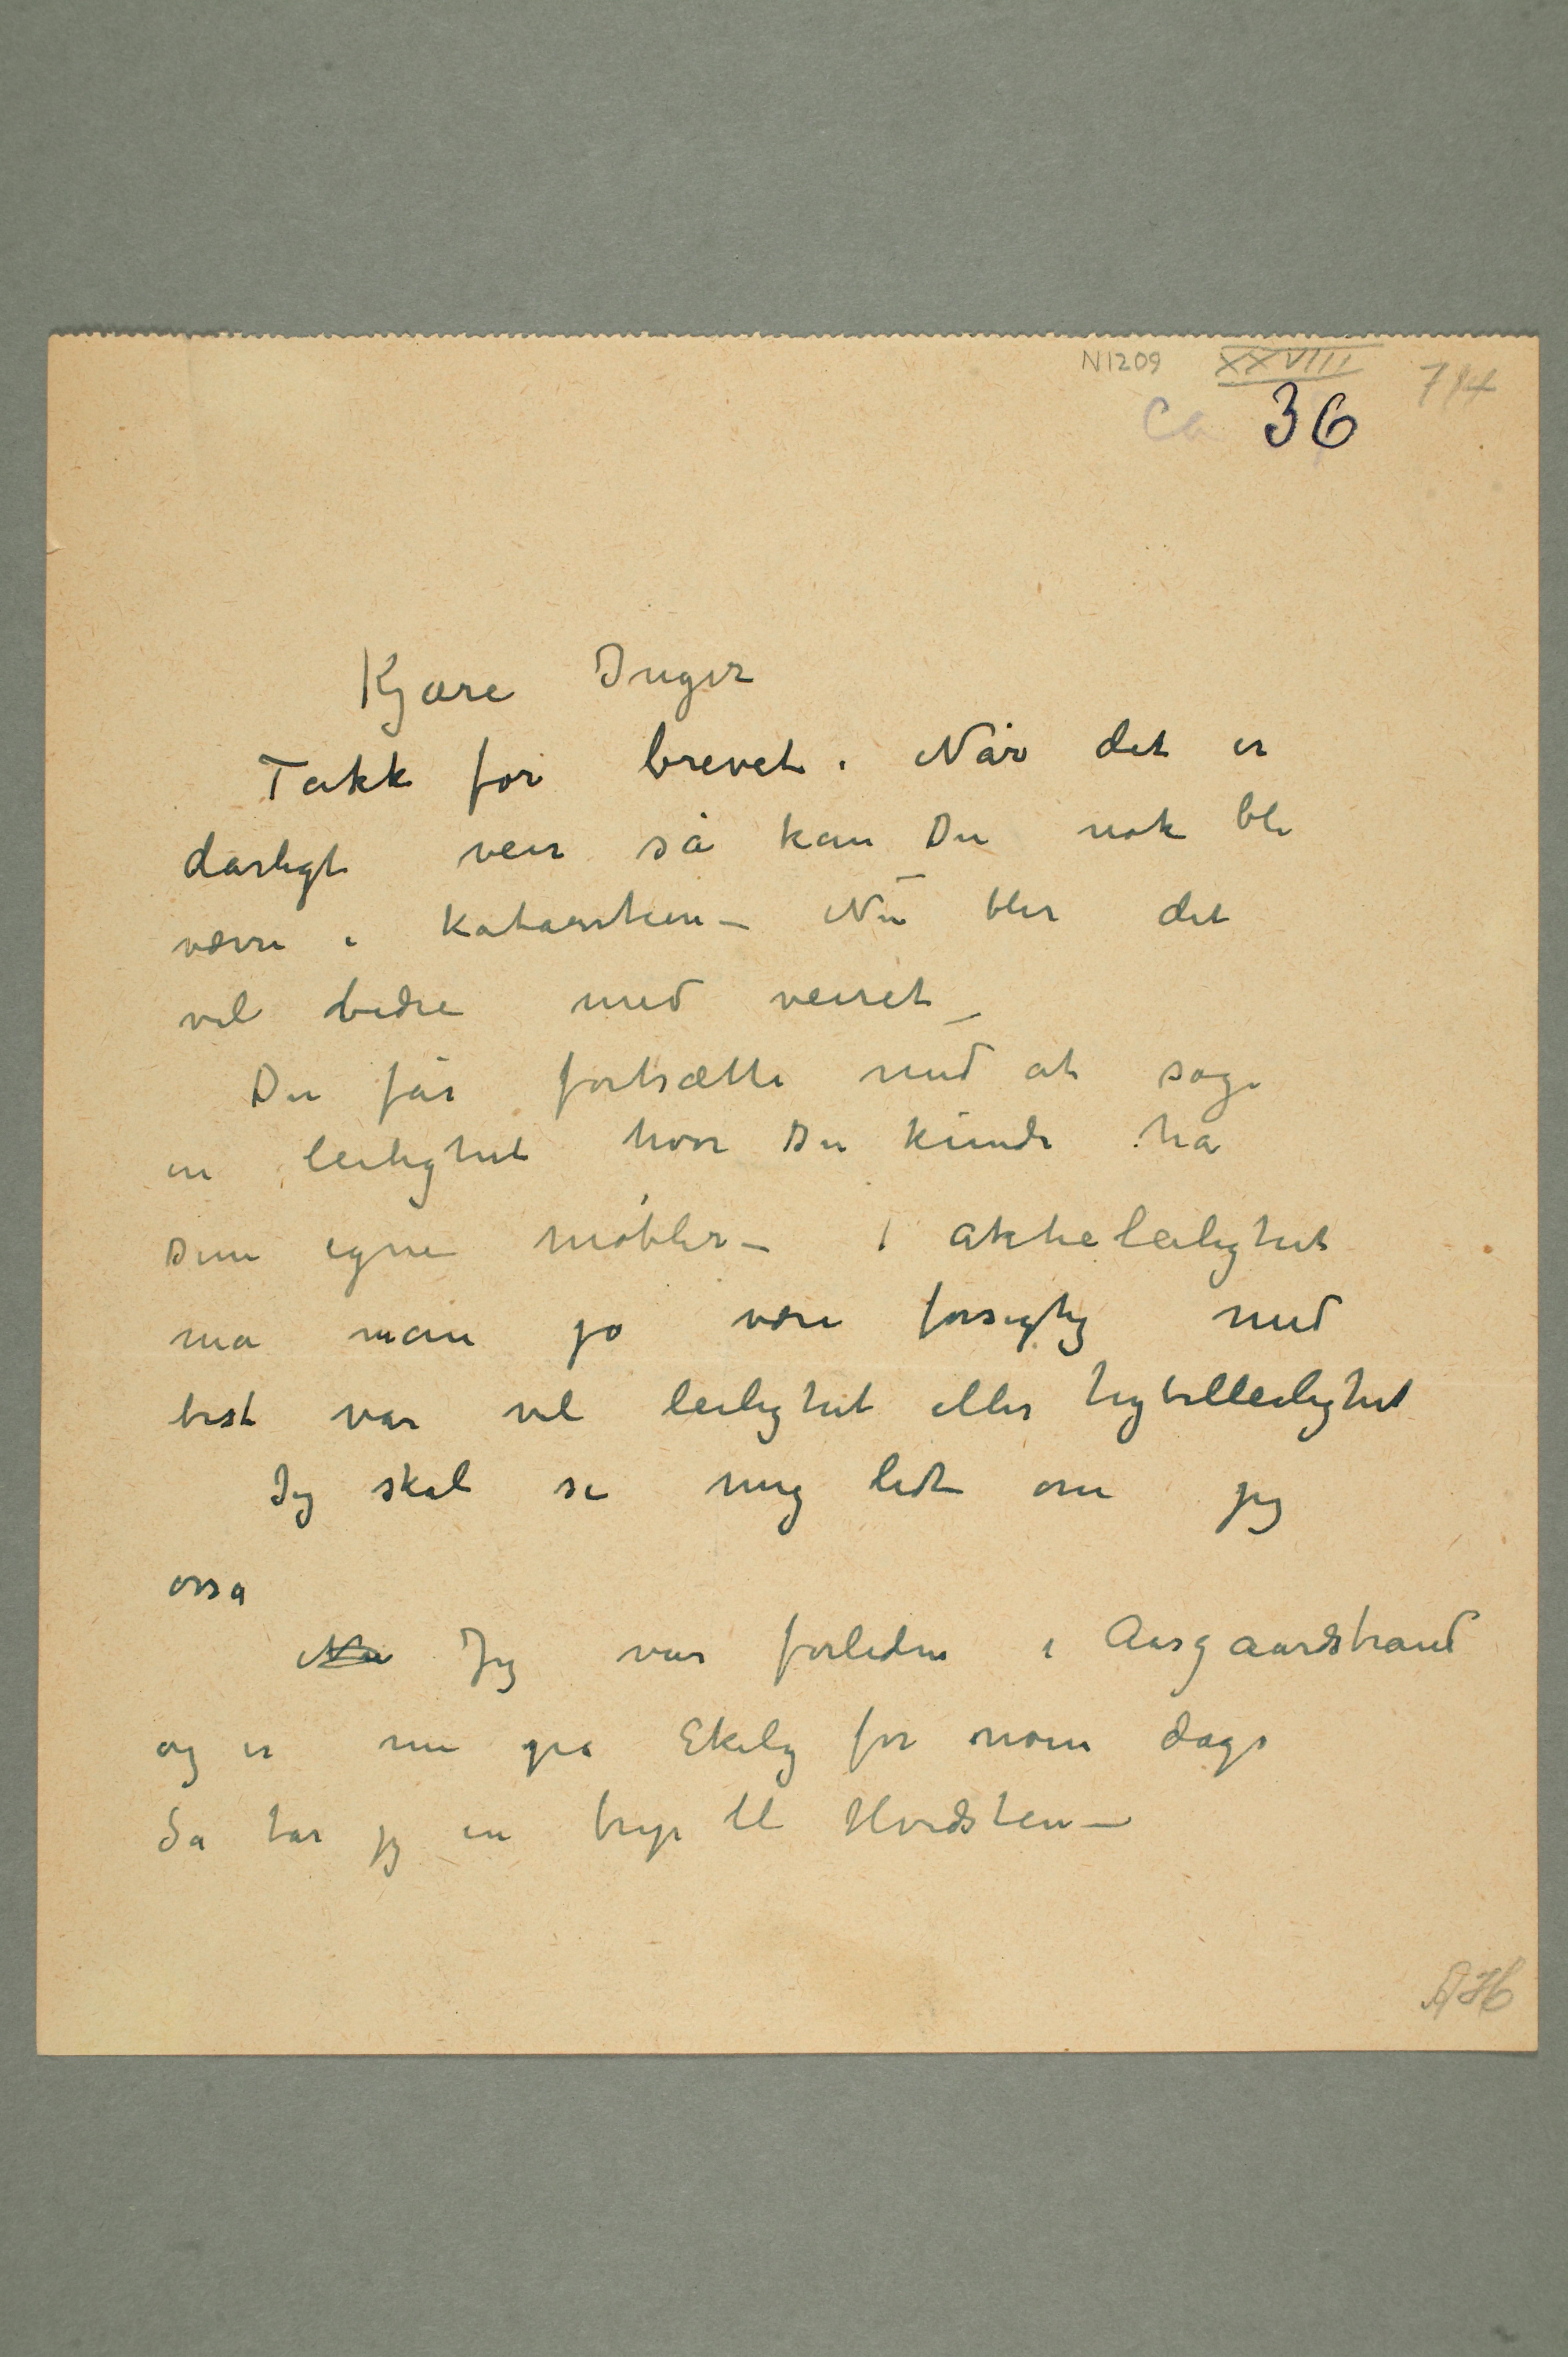 N1209 XXVIII 714
ca 36
Kjære Inger
Takk for brevet. Når det er
darligt veir så kan Du nok bli
værre i Katarrhen – Nu blir det
vel bedre med veiret –
Du får fortsætte med at søge
en leilighet hvor Du kunde ha
Dine egne møbler – I aktieleilighet
ma man jo være forsigtig med
best var vel leilighet eller hybelleilighet
Jeg skal se mig lidt om jeg
ossa
Nu Jeg var forleden i Aasgaardstrand
og er nu på Ekely for noen dage
Sa tar jeg en trip til Hvidsten –